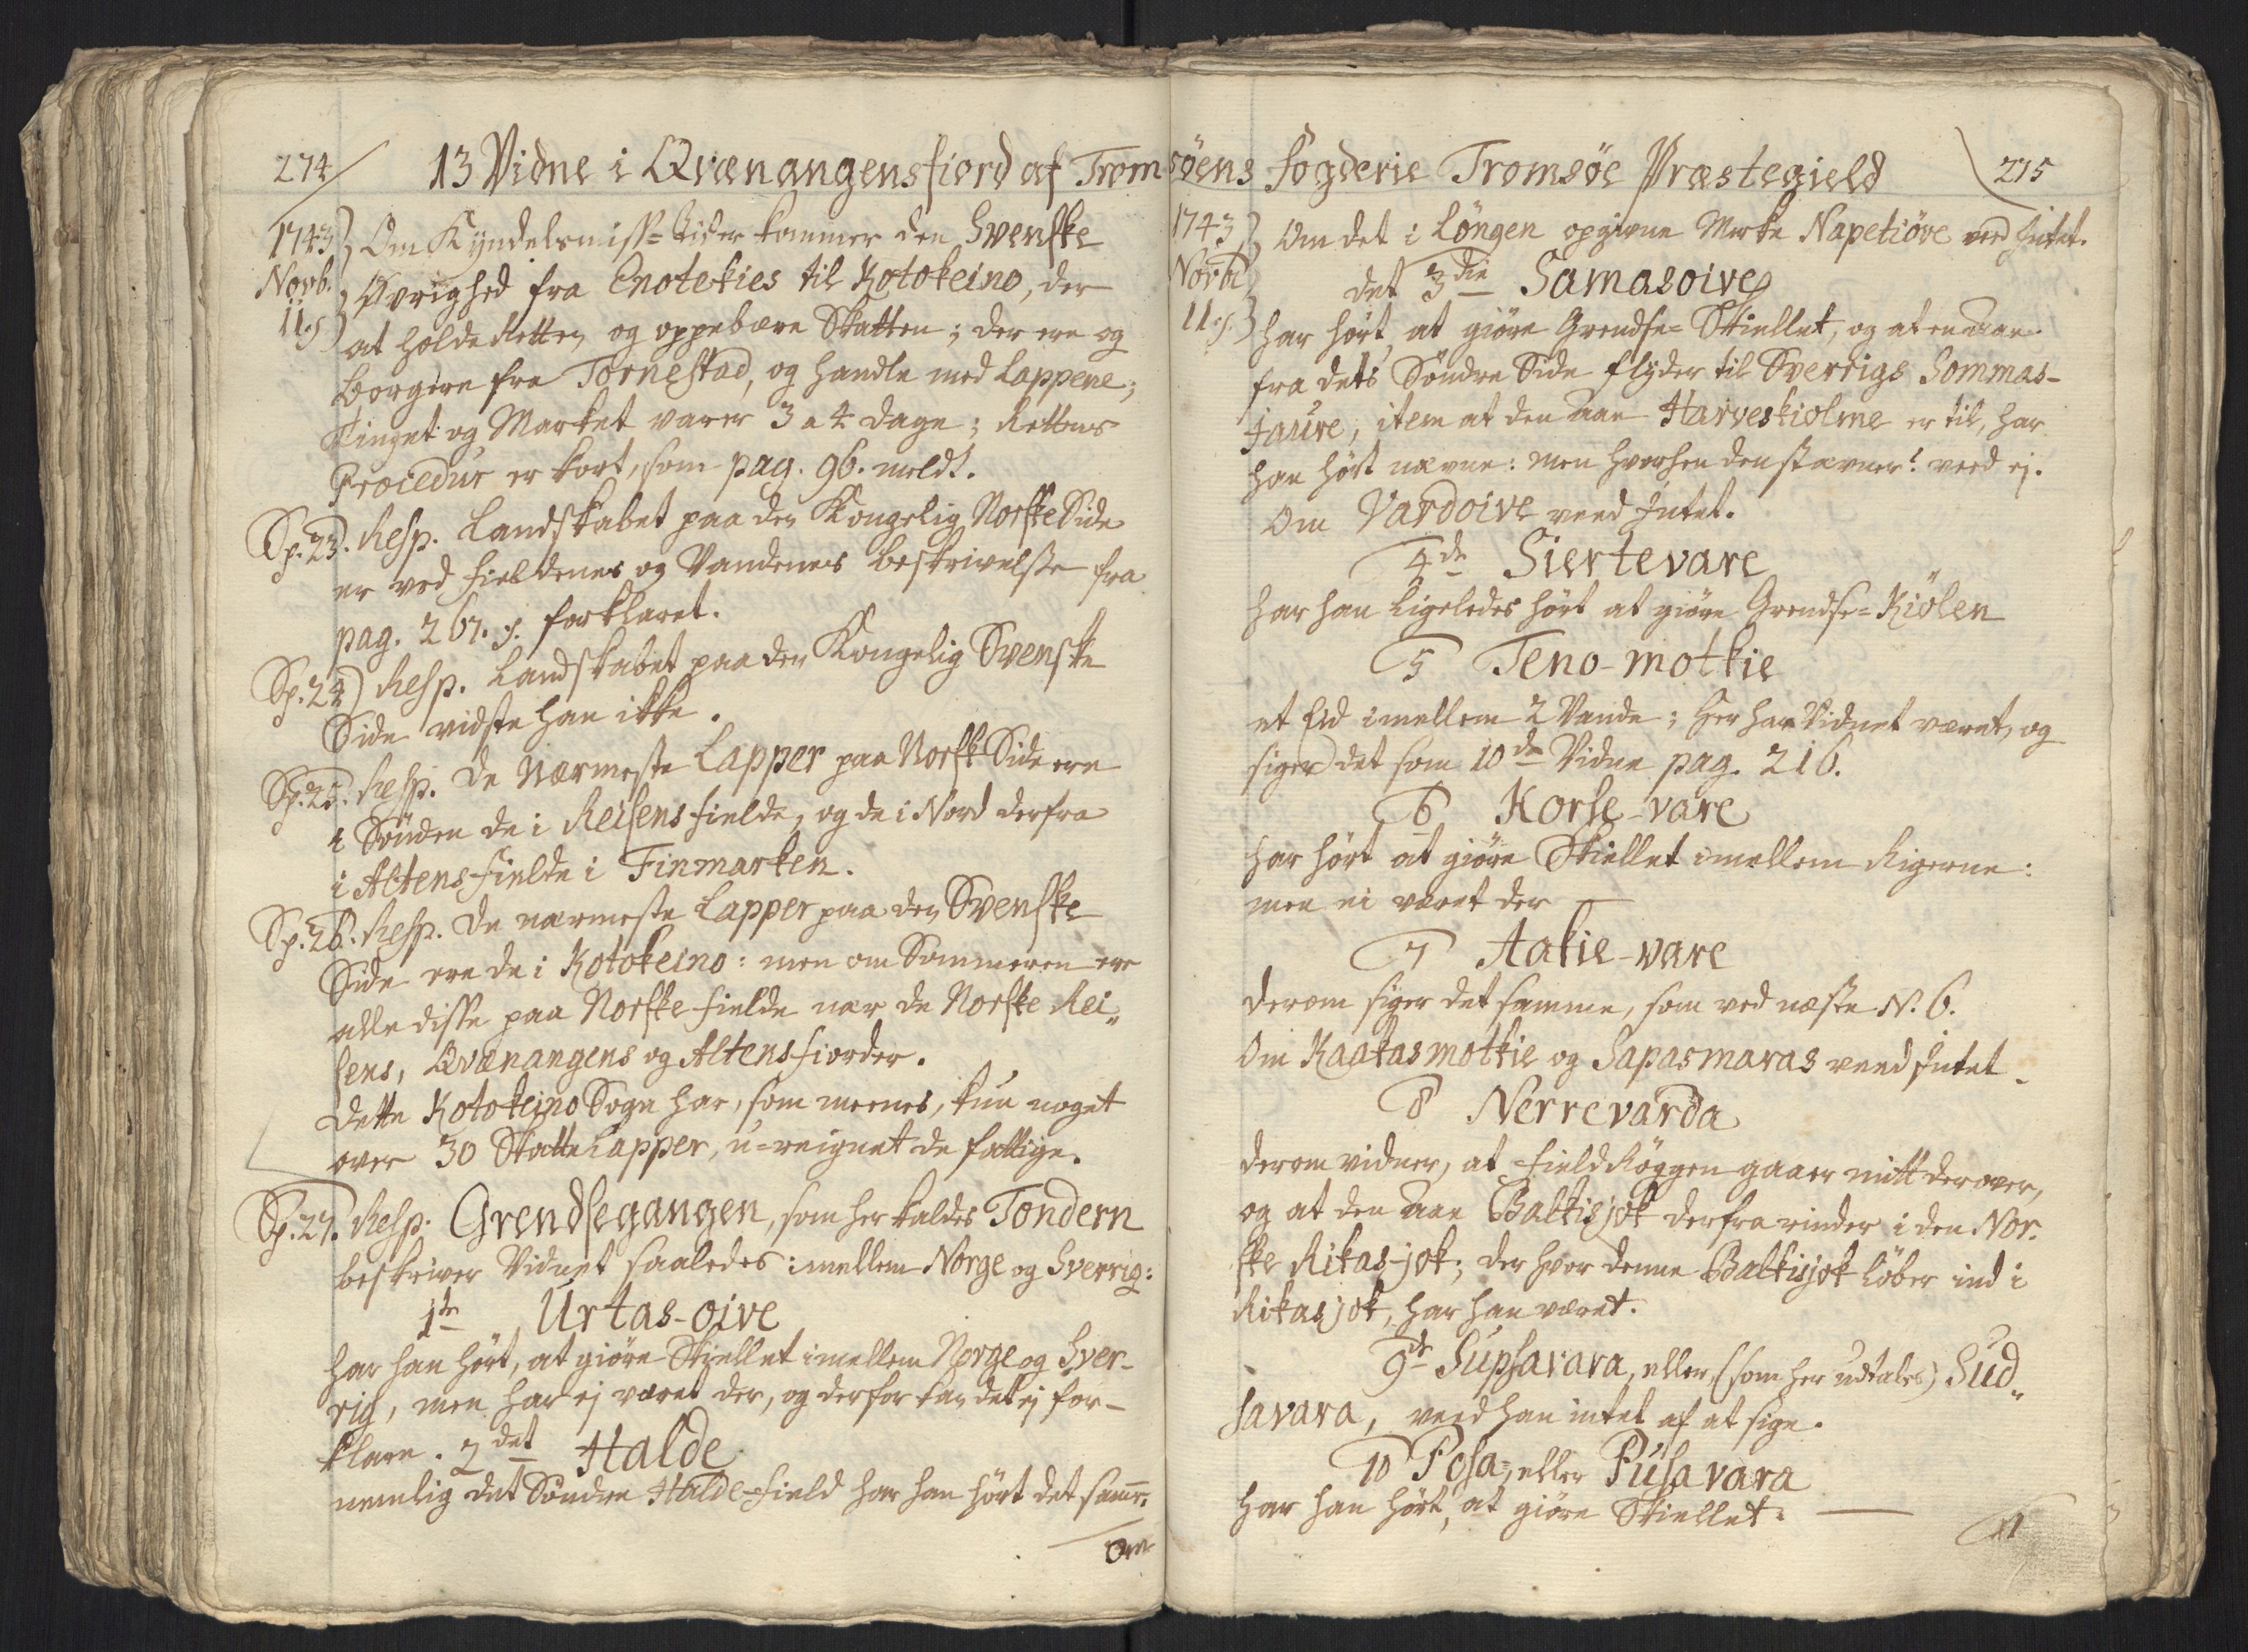 274
13 Vidne i Qvænangensfiord af Trom
1743 Om Kyndelsmiss-Tider kommer den Svenske
Novb. Øvrighed fra Enotekies til Kotokeino, der
11. at holde Retten og oppebære Skatten; der ere og
borgere fra Tornestad, og handle med Lappene;
Tinget og Market varer 3 a 4 dage; Rettens
Procedur er kort, som pag. 96. meldt.
Sp. 23. Resp. Landskabet paa den Kongelig Norske Side
er ved fieldenes og Vandenes beskrivelse fra
pag. 267. forklaret.
Sp. 24) Resp. Landskabet paa den Kongelig Svenske
Side vidste han ikke.
Sp. 25. Resp. De Nærmeste Lapper paa Norsk Side ere
i Sönden de i Reisens fielde, og de i Nord derfra
i Altens fielde i Finmarken.
Sp. 26. Resp. De nærmeste Lapper paa den Svenske
Side ere de i Kotokeino: men om Sommeren ere
alle disse paa Norske fielde nær de Norske Rei„
sens, Qvænangens og Altens fiorder.
Dette Kotokeino Sogn har, som meenes, kun noget
over 30 Skatte Lapper, u-reignet de fattige.
Sp. 27. Resp. Grendsegangen, som her kaldes Tondern
beskriver Vidnet saaledes imellem Norge og Sverrig:
1te Urtas-oive
har han hört, at giöre Skiellet imellem Norge og Sver-
rig, men har ej været der, og derfor kan det ej for-
klare. 2det Halde
nemlig det Söndre Halde-field har han hört det samme.
Om
söens Fogderie Tromsöe Præstegield
215
1743 Om det i Löngen opgivne Merke Napetiöve veed Intet.
Novb. det 3die Samasoive
11. har hört, at giöre Grendse-Skiellet, og at en aae
fra dets Söndre Side flyder til Sverrigs Sommas-
jaure, item at den aae Harveskiolme er til, har
han hört nævne: men hvorhen den stævner! veed ej.
Om Vardoive veed Intet.
4de Siertevare
har han ligeledes hört at giöre Grendse-Kiölen
5 Teno-motkie
et Eid imellem 2 Vande; her har Vidnet været, og
siger det som 10de Vidne pag. 216.
6 Korse-vare
har hört at giöre Skiellet imellem Rigerne:
men ei været der
7 Aakie-vare
derom siger det samme, som ved næste N. 6.
Om Kaakasmotkie og Sapasmaras veed Intet.
8 Nerrevarda
derom vidner, at field Röggen gaaer mitt derover,
og at den aae Baltisjok derfra rinder i den Nor-
ske Rikas-jok; der hvor denne Baltisjok löber ind i
Rikasjok, har han været.
9de Supsavara, eller (som her udtales) Sud„
savara, veed han intet af at sige.
10 Posa-, eller Pusavara
har han hört, at giöre Skiellet.
11